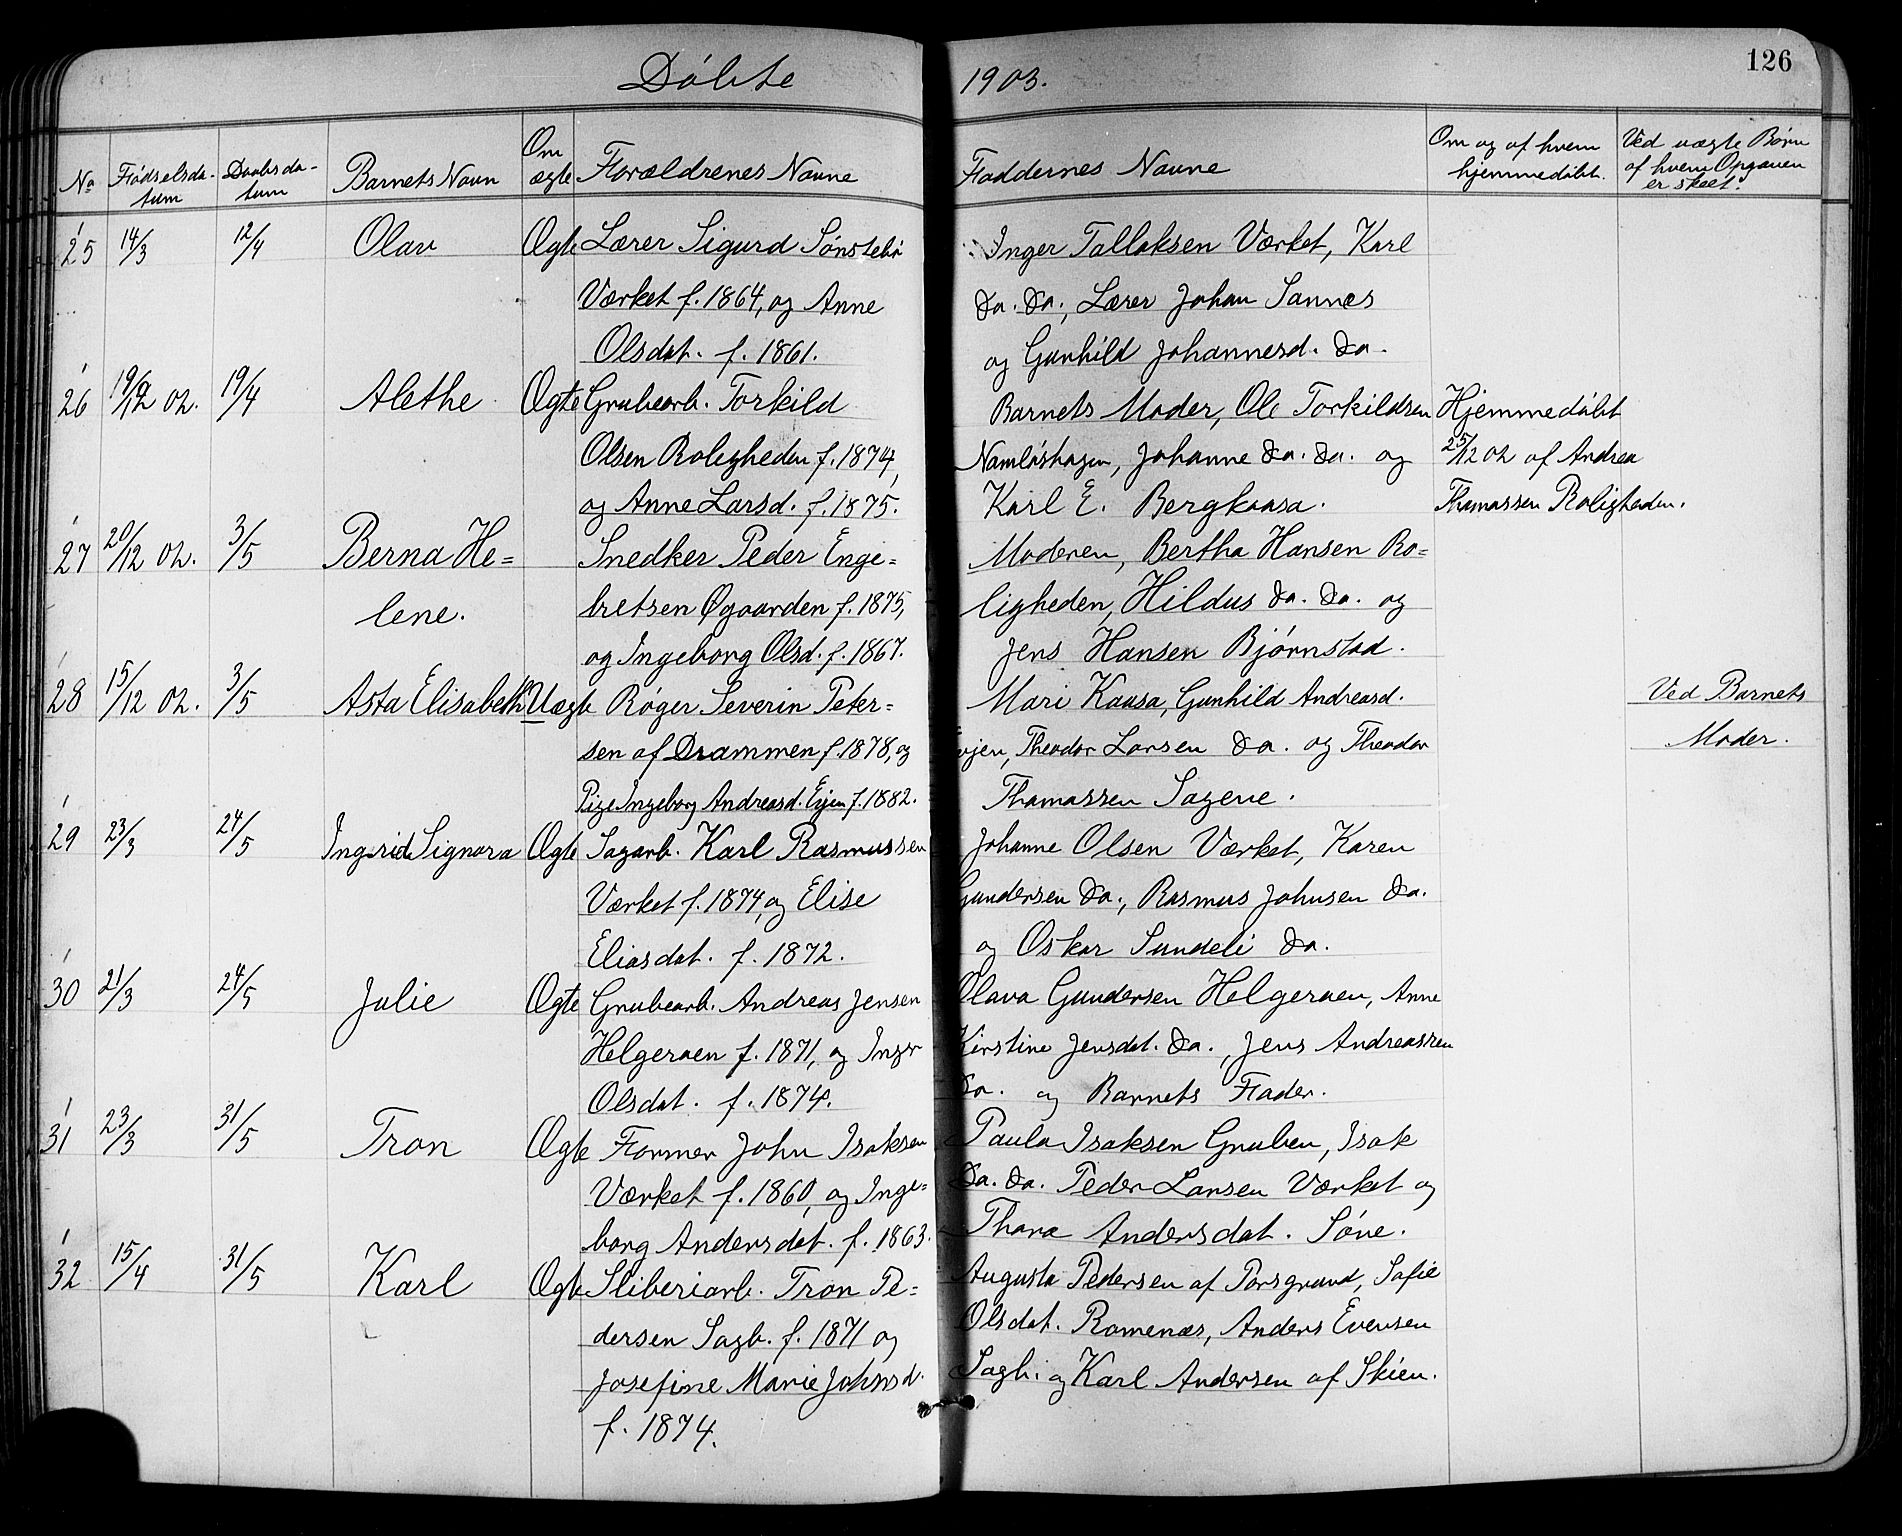 126
Døbte 1903.
No Fødselsdatum Daabsdatum Barnets Navn Om ægte Forældrenes Navne Faddernes Navne Om og af hvem hjemmedøbt. Ved uægte Børn af hvem Opgaven er skeet.
25 14/3 12/4 Olav Ægte Lærer Sigurd Sønstebø
Værket f. 1864, og Anne
Olsdat. f. 1861.
Inger Tallaksen Værket, Karl
do. do., Lærer Johan Sannes
og Gunhild Johannesd. do.
26 19/12 02. 19/4 Alethe Ægte Grubearb. Torkild
Olsen Roligheden f. 1874,
og Anne Larsd. f. 1875.
Barnets Moder, Ole Torkildsen
Namløshagen, Johanne do. do. og
Karl E. Bergkaasa.
Hjemmedøbt
25/12 02 af Andrea
Thomassen Roligheden.
27 20/12 02. 3/5 Berna He=
lene.
Snedker Peder Enge=
bretsen Øgaarden f. 1875,
og Ingeborg Olsd. f. 1867.
Moderen, Bertha Hansen Ro=
ligheden, Hildus do. do. og
Jens Hansen Bjørnstad.
28 15/12 02. 3/5 Asta Elisabeth Uægte Røger Severin Peter=
sen af Drammen f. 1878, og
Pige Ingeborg Andreasd. Eijen f. 1882.
Mari Kaasa, Gunhild Andreasd.
Eijen, Theodor Larsen do. og Theodor
Thomassen Sagene.
Ved Barnets
Moder.
29 23/3 24/5 Ingrid Signora Ægte Sagarb. Karl Rasmussen
Værket f. 1874, og Elise
Eliasdat. f. 1872.
Johanne Olsen Værket, Karen
Gundersen do., Rasmus Johnsen do.
og Oskar Sundeli do.
30 21/3 24/5 Julie Ægte Grubearb. Andreas Jensen
Helgeraaen f. 1871, og Inger
Olsdat. f. 1874.
Olava Gundersen Helgeraaen, Anne
Kirstine Jensdat. do., Jens Andreassen
do. og Barnets Fader.
31 23/3 31/5 Tron Ægte Former John Isaksen
Værket f. 1860, og Inge=
borg Andersdat. f. 1863.
Paula Isaksen Gruben, Isak
do. do. Peder Larsen Værket og
Thora Andersdat. Søve.
32 15/4 31/5 Karl Ægte Sliberiarb. Tron Pe=
dersen Sagb. f. 1871 og
Josefine Marie Johnsd.
f. 1874.
Augusta Pedersen af Porsgrund, Sofie
Olsdat. Romenæs, Anders Evensen
Sagb. og Karl Andersen af Skien.